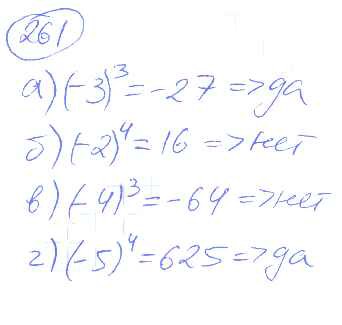 261
а) (-3)³ = -27 => да
б) (-2)⁴ = 16 => нет
в) (-4)³ = -64 => нет
г) (-5)⁴ = 625 => да